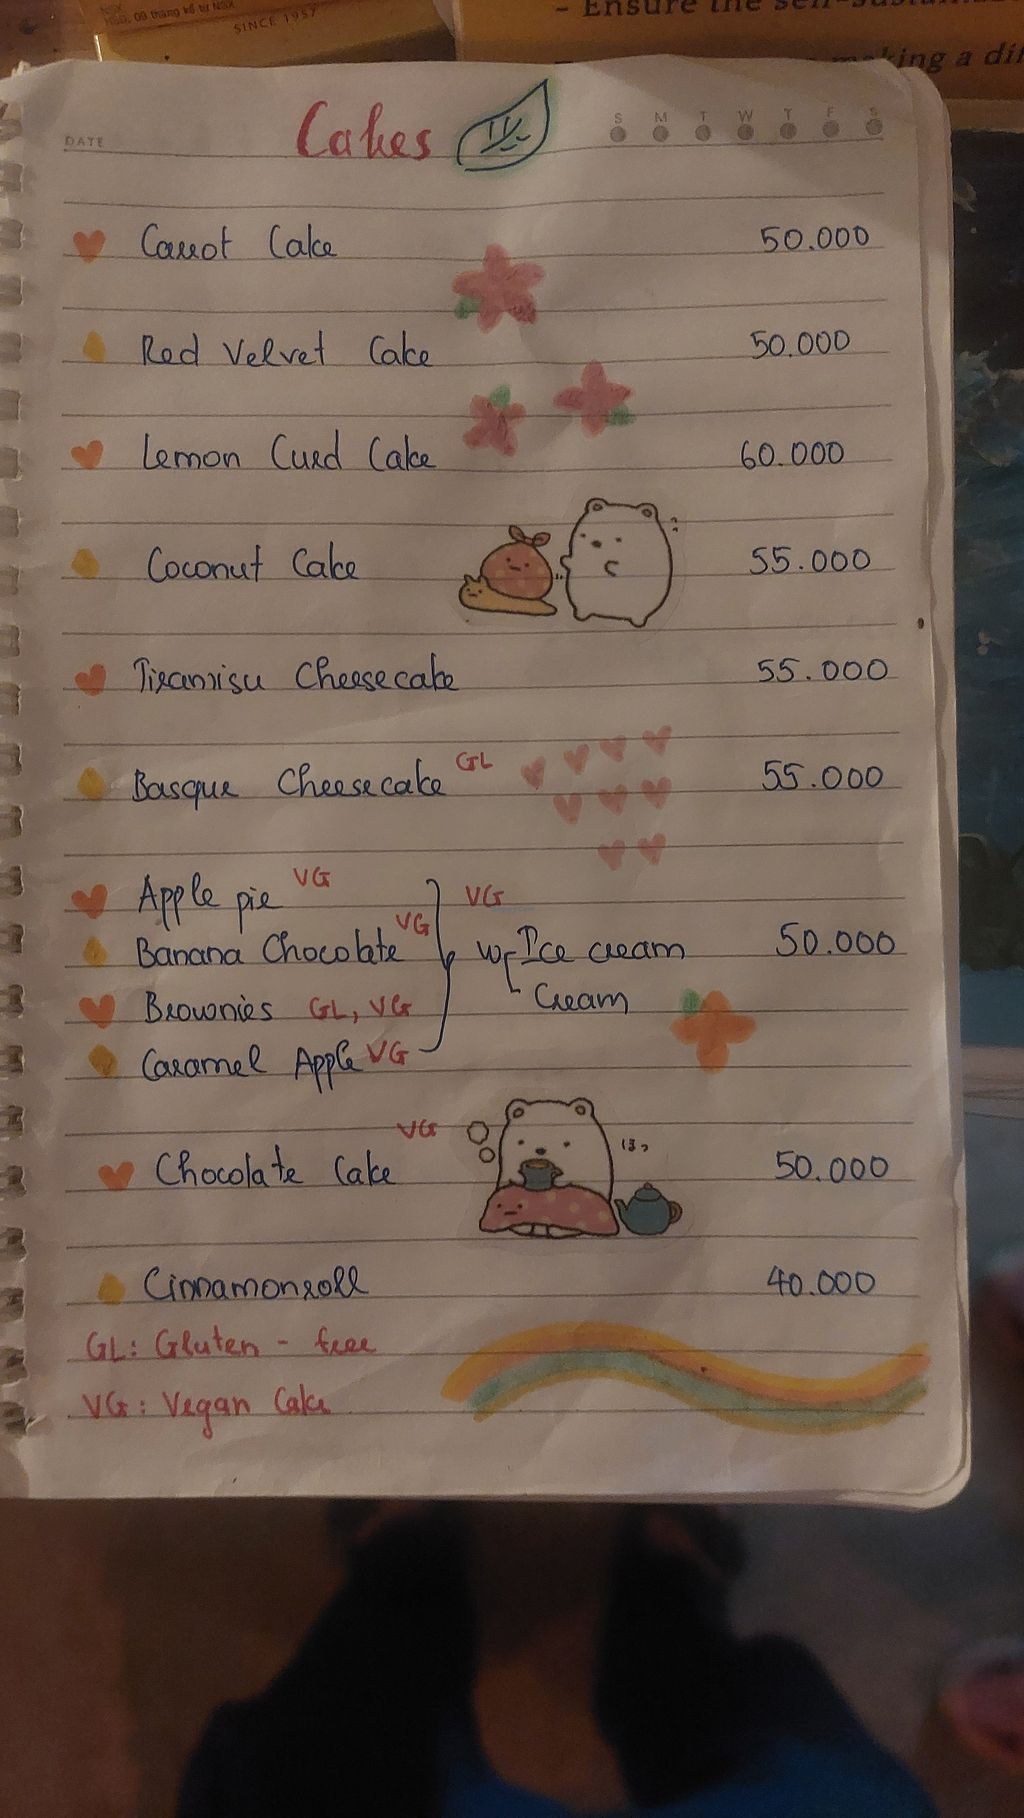 HSD: 09 tháng kể từ NSX
SINCE 1957
- Ensure the
making a
DATE
Cakes
S M T W T F S
Carrot Cake 50.000
Red Velvet Cake 50.000
Lemon Curd Cake 60.000
Coconut Cake 55.000
Tiramisu Cheesecake 55.000
Basque Cheesecake GL 55.000
Apple pie VG
Banana Chocolate VG
Brownies GL, VG
Caramel Apple VG
VG
w Ice cream 50.000
Cream
Chocolate Cake VG 50.000
ほっ
Cinnamonroll 40.000
GL: Gluten - free
VG: Vegan Cake